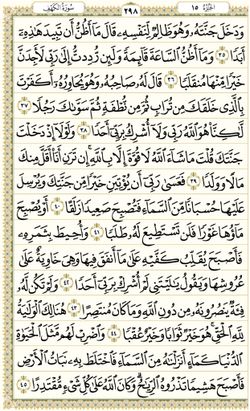 الجزء ١٥ ٢٩٨ سورة الكهف
وَدَخَلَ جَنَّتَهُۥ وَهُوَ ظَالِمٌ لِّنَفْسِهِۦ قَالَ مَآ أَظُنُّ أَن تَبِيدَ هَٰذِهِۦٓ
أَبَدًا ٣٥ وَمَآ أَظُنُّ ٱلسَّاعَةَ قَآئِمَةً وَلَئِن رُّدِدتُّ إِلَىٰ رَبِّي لَأَجِدَنَّ
خَيْرًا مِّنْهَا مُنقَلَبًا ٣٦ قَالَ لَهُۥ صَاحِبُهُۥ وَهُوَ يُحَاوِرُهُۥٓ أَكَفَرْتَ
بِٱلَّذِي خَلَقَكَ مِن تُرَابٍ ثُمَّ مِن نُّطْفَةٍ ثُمَّ سَوَّىٰكَ رَجُلًا ٣٧
لَّٰكِنَّا۠ هُوَ ٱللَّهُ رَبِّي وَلَآ أُشْرِكُ بِرَبِّيٓ أَحَدًا ٣٨ وَلَوْلَآ إِذْ دَخَلْتَ
جَنَّتَكَ قُلْتَ مَا شَآءَ ٱللَّهُ لَا قُوَّةَ إِلَّا بِٱللَّهِ إِن تَرَنِ أَنَا۠ أَقَلَّ مِنكَ
مَالًا وَوَلَدًا ٣٩ فَعَسَىٰ رَبِّيٓ أَن يُؤْتِيَنِ خَيْرًا مِّن جَنَّتِكَ وَيُرْسِلَ
عَلَيْهَا حُسْبَانًا مِّنَ ٱلسَّمَآءِ فَتُصْبِحَ صَعِيدًا زَلَقًا ٤٠ أَوْ يُصْبِحَ
مَآؤُهَا غَوْرًا فَلَن تَسْتَطِيعَ لَهُۥ طَلَبًا ٤١ وَأُحِيطَ بِثَمَرِهِۦ
فَأَصْبَحَ يُقَلِّبُ كَفَّيْهِ عَلَىٰ مَآ أَنفَقَ فِيهَا وَهِيَ خَاوِيَةٌ عَلَىٰ
عُرُوشِهَا وَيَقُولُ يَٰلَيْتَنِي لَمْ أُشْرِكْ بِرَبِّيٓ أَحَدًا ٤٢ وَلَمْ تَكُن لَّهُۥ
فِئَةٌ يَنصُرُونَهُۥ مِن دُونِ ٱللَّهِ وَمَا كَانَ مُنتَصِرًا ٤٣ هُنَالِكَ ٱلْوَلَٰيَةُ
لِلَّهِ ٱلْحَقِّ هُوَ خَيْرٌ ثَوَابًا وَخَيْرٌ عُقْبًا ٤٤ وَٱضْرِبْ لَهُم مَّثَلَ ٱلْحَيَوٰةِ
ٱلدُّنْيَا كَمَآءٍ أَنزَلْنَٰهُ مِنَ ٱلسَّمَآءِ فَٱخْتَلَطَ بِهِۦ نَبَاتُ ٱلْأَرْضِ
فَأَصْبَحَ هَشِيمًا تَذْرُوهُ ٱلرِّيَٰحُ وَكَانَ ٱللَّهُ عَلَىٰ كُلِّ شَيْءٍ مُّقْتَدِرًا ٤٥